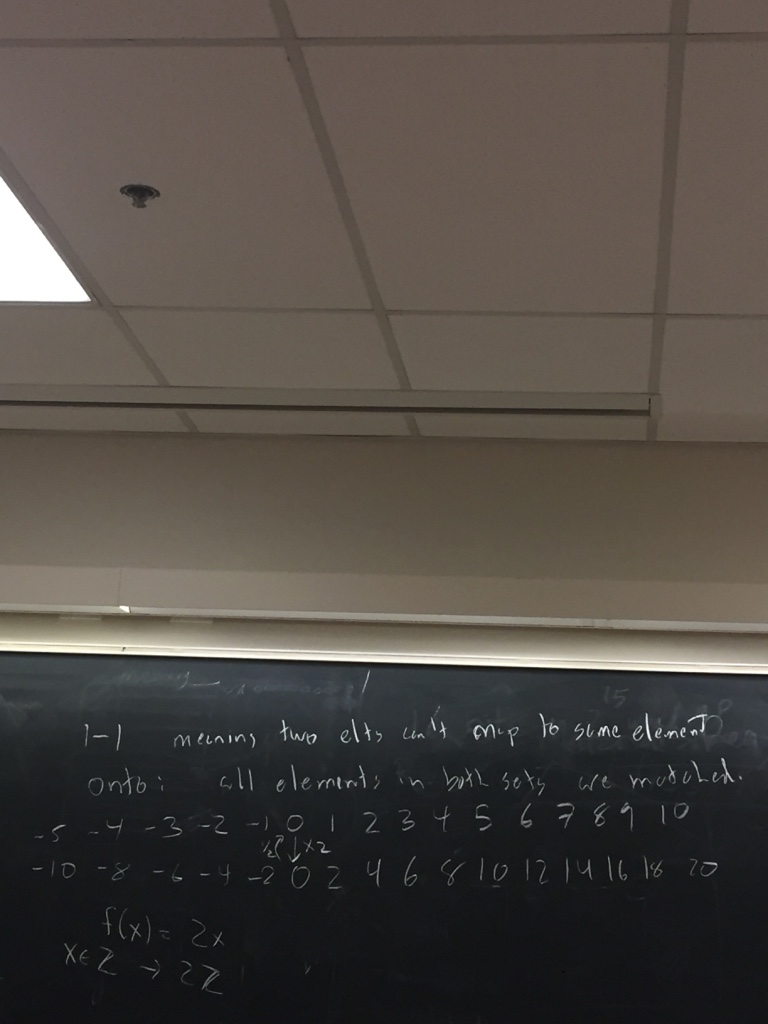 1-1 meaning two elts can't map to same element
onto: all elements in both sets are matched.
-5 -4 -3 -2 -1 0 1 2 3 4 5 6 7 8 9 10
1/2 ↑ ↓ x2
-10 -8 -6 -4 -2 0 2 4 6 8 10 12 14 16 18 20
f(x) = 2x
x∈Z → 2Z